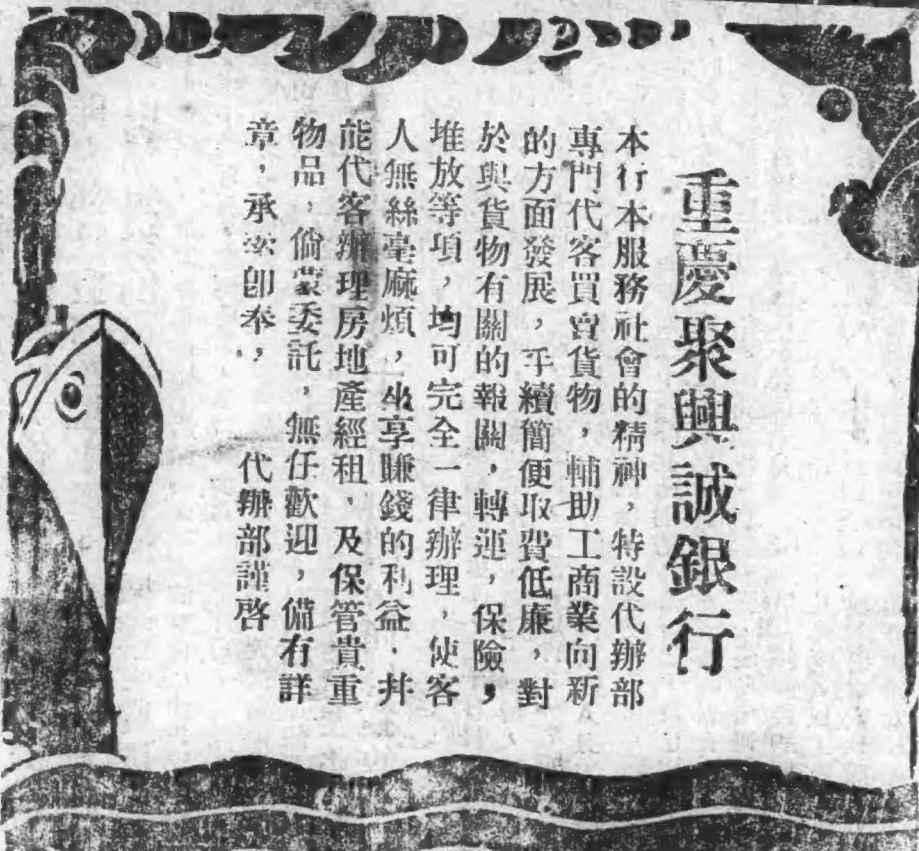 重慶聚興誠銀行
本行本服務社會的精神，特設代辦部
專門代客買賣貨物，輔助工商業向新
的方面發展，手續簡便取費低廉，對
於與貨物有關的報關，轉運，保險，
堆放等項，均可完全一律辦理，使客
人無絲毫麻煩，坐享賺錢的利益，并
能代客辦理房地產經租，及保管貴重
物品，倘蒙委託，無任歡迎，備有詳
章，承索卽奉，
代辦部謹啓